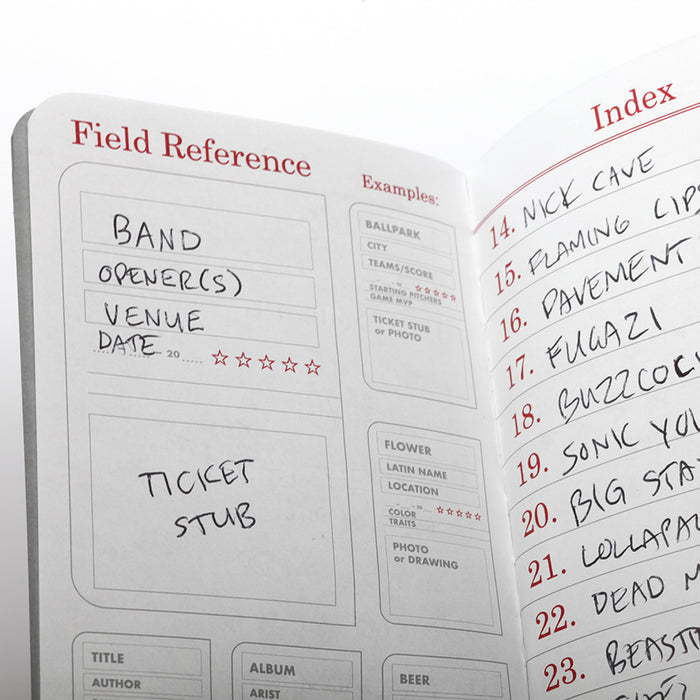 Field Reference
BAND
OPENER(S)
VENUE
DATE 20
TICKET
STUB
Examples:
BALLPARK
CITY
TEAMS/SCORE
20
STARTING PITCHERS
GAME MVP
TICKET STUB
or PHOTO
FLOWER
LATIN NAME
LOCATION
20
COLOR
TRAITS
PHOTO
or DRAWING
TITLE
AUTHOR
ALBUM
ARIST
BEER
Index
14. NICK CAVE
15. FLAMING LIPS
16. PAVEMENT
17. FUGAZI
18. BUZZCOC
19. SONIC YOU
20. BIG STA
21. LOLLAPAL
22. DEAD M
23. BEAST